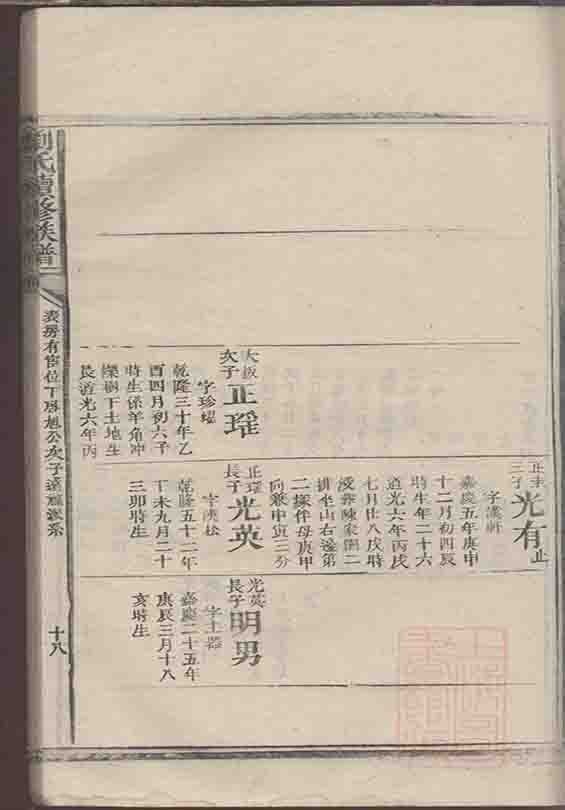 正圭
三子
光有
止
字漢軒
嘉慶五年庚申
十二月初四辰
時生年二十六
道光六年丙戌
七月廿八戌時
沒葬陳家園二
排坐山右邊第
二槨伴母庚甲
向兼申寅三分
大振
次子
正瑶
字珍耀
乾隆三十年乙
酉四月初六子
時生係羊角冲
下土地生
長道光六年丙
正瑶
長子
光英
字漢松
乾隆五十二年
丁未九月二十
三卯時生
光英
長子
明男
字土器
嘉慶二十五年
庚辰三月十八
亥時生
劉氏續修族譜
房有富位下勝旭公次子遠派系
十八